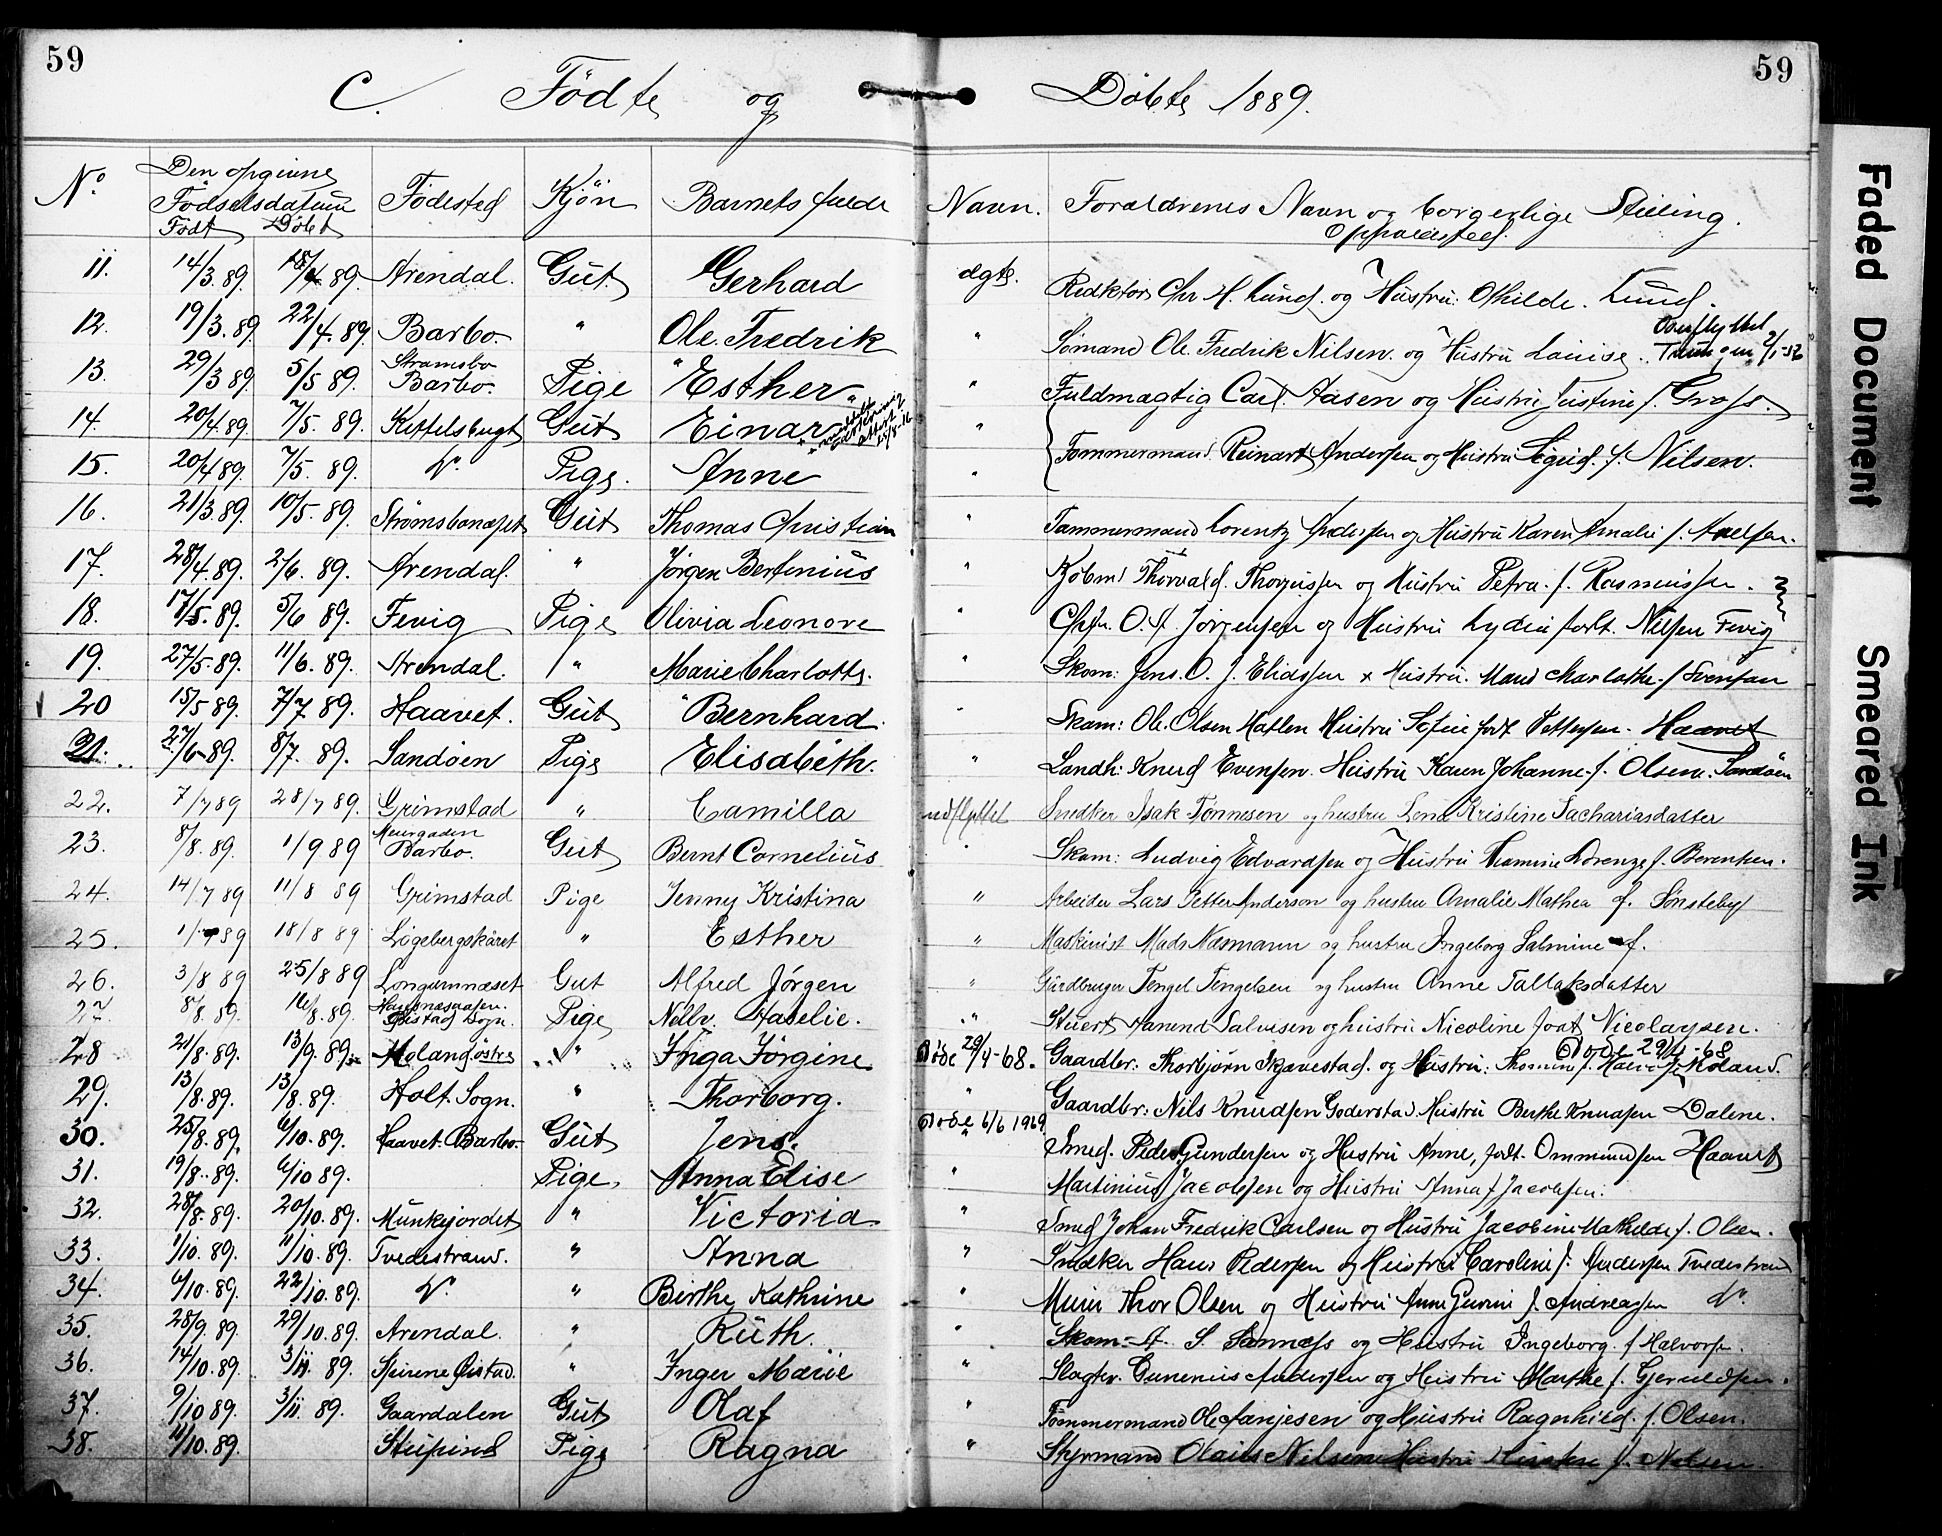 59
59
C. Födte og Döbte 1889.
No. Den opgivne Fødselsdatum Födt Döbt Födested Kjön Barnets fulde Navn. Forældrenes Navn og borgerlige Stilling. Opholdsted.
11. 14/3 89. 18/4 89 Arendal. Gut Gerhard ægte. Redktör Chr H. Lund. og Hustru: Othilde. Lund.
12. 19/3. 89. 22/4. 89. Barbo. " Ole. Fredrik " Sömand Ole. Fredrik Nilsen. og Hustru Louise. Overflyttet
13. 29/3 89. 5/5 89. Strømsbo Barbo. Pige "Esther" " Fuldmægtig Carl. Aasen og Hustru Justine f. Gross.
14. 20/4. 89. 7/5. 89. Kittelsbugt Gut Einar
15. 20/4 89. 7/5 89. Do. Pige. Anne " Tømmermand Reinart Andersen og Hustru Sigrid. f. Nilsen.
16. 21/3. 89. 10/5. 89. Strømsbonæset Gut Thomas Christian " Tømmermand Lorentz Andersen og Hustru Karen Amalie f.
17. 28/4. 89. 2/6. 89. Arendal. " Jörgen Bertinius " Kjöbmd Thorvald. og Hustru Petra. f. Rasmussen.
18. 17/5. 89. 5/6 89. Fevig Pige Olivia Leonore " O. A. Jörgensen og Hustru Lydia födt. Nilsen Fevig
19. 27/5. 89. 11/6. 89. Arendal. " Marie Charlotte. " Skom: Jens. O. J. Eliassen x Hustru. Charlothe. f Svensen
20 15/5 89. 7/7 89. Haavet. Gut "Bernhard. " Skom: Ole. Olsen Hustru Sofie födt Pettersen. Haavet
21. 27/6 89. 8/7. 89. Sandöen Pige Elisabeth. " Landh: Knud Evensen. Hustru Karen Johanne. f. Olsen. Sandöen
22. 7/7 89 28/7 89. Grimstad " Camilla udflyttet Snedker Isak Tönnesen og hustru Lena Kristine Sachariasdatter
23. 8/8. 89. 1/9 89 Barbo. Gut Bernt Cornelius " Skom: Ludvig Edvardsen og Hustru Lorenze f. Berentsen.
24. 14/7 89 11/8 89 Grimstad Pige Jenny Kristina " Arbeider Lars Petter Anderson og hustru Amalie Mathea f. Sönsteby
25. 1/7 89 18/8 89 Løgebergskåret " Esther " Maskinist Mads Næsmann og hustru Ingeborg Salmine f.
26. 3/8 89 25/8 89 Longumnæset Gut Alfred Jörgen " Gårdbruger Tengel Tengelsen og hustru Anne Tallaksdatter
27. 8/8. 89. 89. Øistad Sogn. Pige Nelly. Haselie. " Stuert Aanend Salvesen og hustru Nicoline födt Nicolaysen.
28 21/8. 89. 13/9. 89. Moland østre " Inga Jörgine Döde 29/4-68. Gaardbr: Thorbjörn Skjævestad. og Hustru: Moland. Döde 29/4-68
29. 13/8. 89. 13/8. 89. Holt. Sogn. " Thorborg. " Gaardbr: Nils Knudsen Goderstad Hustru Berthe Knudsen Dalene.
30. 25/8. 89. 6/10. 89. Haavet. Barbo. Gut Jens. Döde 6/6 1969 Smed. Peder Gundersen og Hustru Anne, födt. Ommundsen Haavet
31. 19/8. 89. 6/10 89. Pige. Anna Elise " Martinius Jacobsen og Hustru Anna f Jacobsen.
32. 28/8. 89. 20/10. 89. Munkejordet " Victoria. " Smed Johan Fredrik Carlsen og Hustru Jacobine Mathilde f. Olsen.
33. 1/10. 89. 11/10. 89. Tvedestrand. " Anna " Snedker Hans Pedersen og Hustru Caroline f. Andersen Tvedestrand
34. 6/10. 89. 22/10. 89. Do. " Birthe Kathrine " Murer Thor Olsen og Hustru Anne Gurine f. Andreassen Do.
35. 28/9. 89. 29/10. 89. Arendal. " Ruth. " Skom: A. S. Sannæss og Hustru Ingeborg. f Halvorsen.
36. 14/10. 89. 3/11. 89. Øistad. " Inger Marie " Slagter. Gunerius Andersen og Hustru Marthe f. Gjeruldsen.
37. 9/10 89. 3/11. 89. Gaardalen Gut Olaf " Tømmermand Ole Aanjesen og Hustru Ragnhild. f. Olsen.
38. 11/10. 89. Stupind Pige Ragna " Styrmand Olaus Nilsen Hustru f. Nilsen.
Faded Document
Smeared Ink